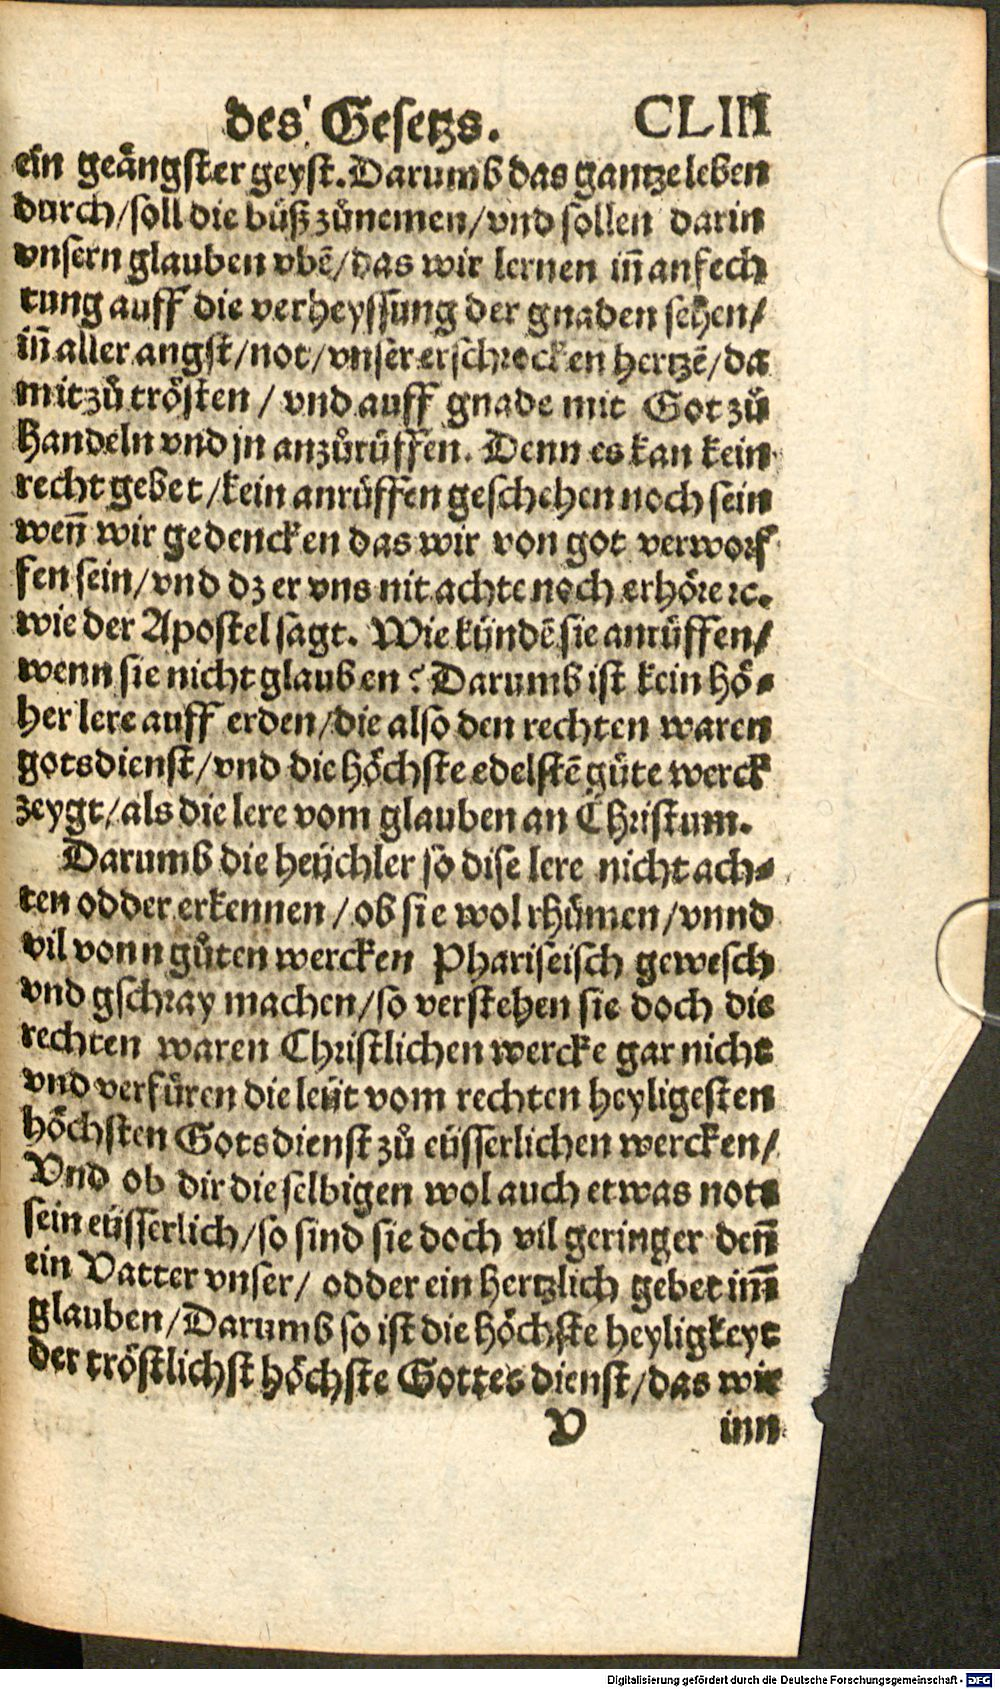 des Gesetzs. CLIII
ein geängster geyst. Darumb das gantze leben
durch/soll die büß zůnemen/vnd sollen darin
vnsern glauben vbē/das wir lernen iñ anfech
tung auff die verheyssung der gnaden sehen/
iñ aller angst/not/vnser erschrocken hertzē/da
mit zů trösten/vnd auff gnade mit Got zů
handeln vnd jn anzůrüffen. Denn es kan kein
recht gebet/kein anrüffen geschehen noch sein
weñ wir gedencken das wir von got verworf
fen sein/vnd dz er vns nit achte noch erhöre ꝛc.
wie der Apostel sagt. Wie kündē sie anrüffen/
wenn sie nicht glauben? Darumb ist kein hö⸗
her lere auff erden/die also den rechten waren
gotsdienst/vnd die höchste edelstē güte werck
zeygt/als die lere vom glauben an Christum.
Darumb die heüchler so dise lere nicht ach⸗
ten odder erkennen/ob sie wol rhümen/vnnd
vil vonn gůten wercken Phariseisch gewesch
vnd gschray machen/so verstehen sie doch die
rechten waren Christlichen wercke gar nicht
vnd verfüren die leüt vom rechten heyligesten
höchsten Gotsdienst zů eüsserlichen wercken/
Vnd ob dir die selbigen wol auch etwas nots
sein eüsserlich/so sind sie doch vil geringer deñ
ein Vatter vnser/odder ein hertzlich gebet im̃
glauben/Darumb so ist die höchste heyligkeyt
der tröstlichst höchste Gottes dienst/das wir
V inn
Digitalisierung gefördert durch die Deutsche Forschungsgemeinschaft - DFG